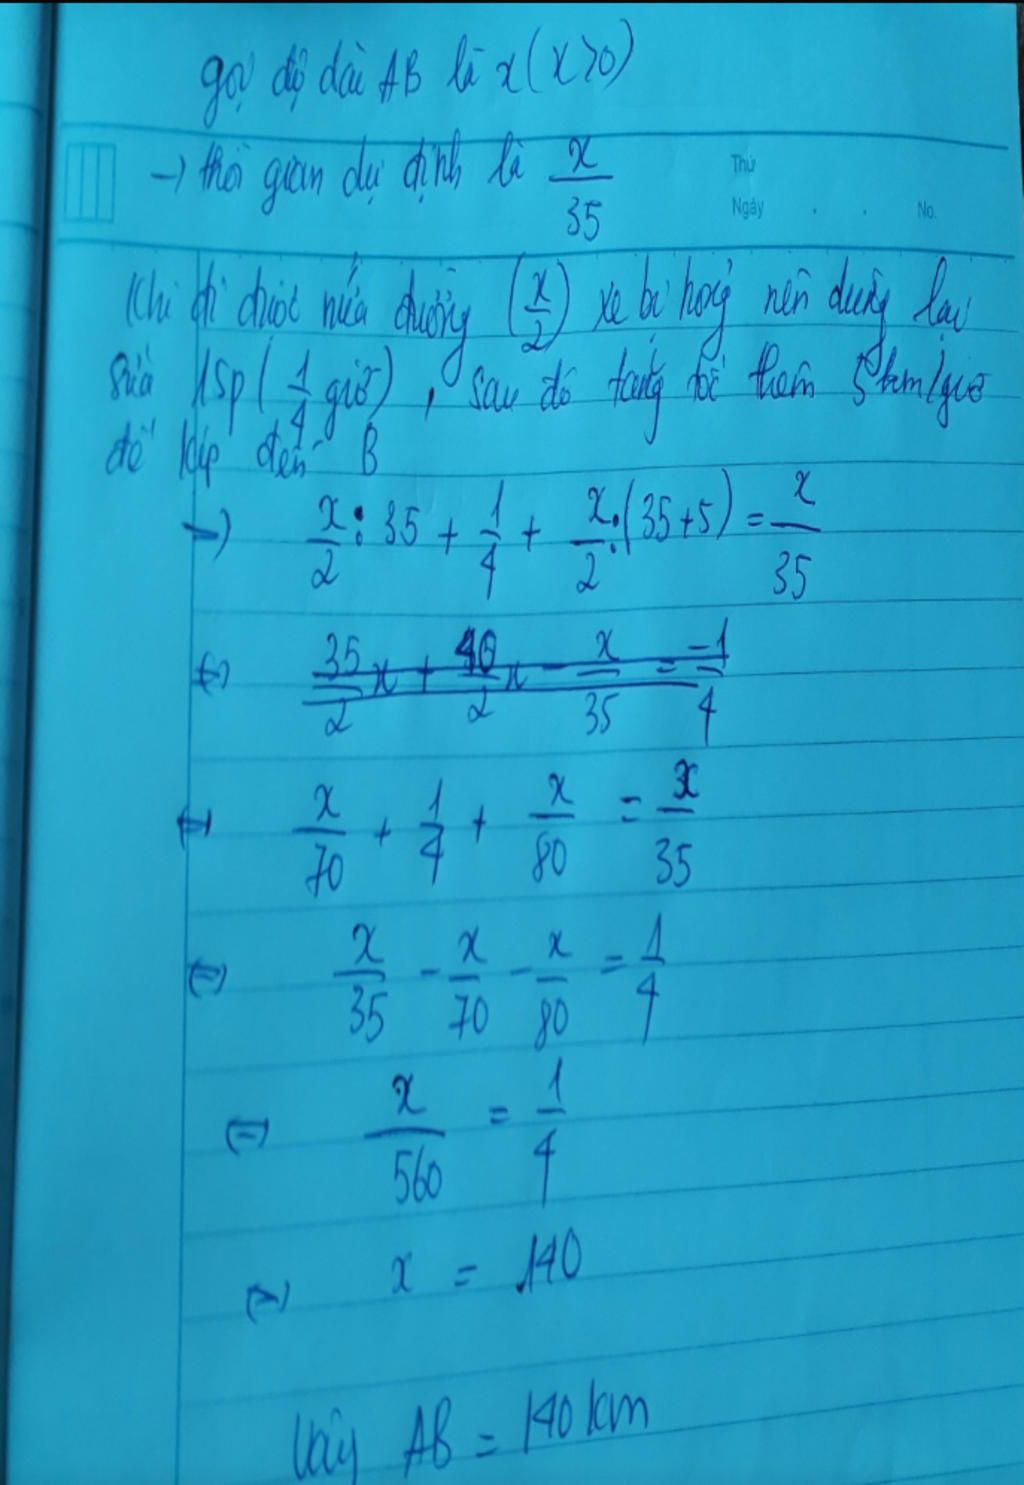 gọi độ dài AB là x (x>0)
→ thời gian dự định là x/35
Thứ
Ngày . . No.
Khi đi được nửa đường (x/2) xe bị hỏng nên dừng lại
sửa 15p (1/4 giờ), sau đó tăng tốc thêm 5km/giờ
để kịp đến B
→ x/2 : 35 + 1/4 + x/2 : (35+5) = x/35
⇔ 35/2 x + 40/2 x - x/35 = -1/4
⇔ x/70 + 1/4 + x/80 = x/35
⇔ x/35 - x/70 - x/80 = 1/4
⇔ x/560 = 1/4
⇔ x = 140
Vậy AB = 140 km